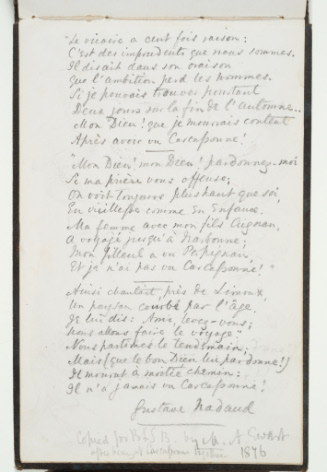 "Le vicaire a cent fois raison:
C'est des imprudents que nous sommes.
Il disait dans son oraison
Que l'ambition perd les hommes.
Si je pouvais trouver pourtant
Deux jours sur la fin de l'automne..
Mon Dieu! que je mourrais content
Après avoir vu Carcassonne!
"Mon Dieu! mon Dieu! pardonnez-moi
Si ma prière vous offense;
On voit toujours plus haut que soi,
En vieillesse comme en Enfance.
Ma femme avec mon fils Aignan,
A voyagé jusqu'à Narbonne;
Mon filleul a vu Perpignan,
Et je n'ai pas vu Carcassonne!"
Ainsi chantait, près de Limoux,
Un paysan courbé par l'âge.
Je lui dis: Ami, levez-vous;
Nous allons faire le voyage.
Nous partîmes le lendemain;
Mais (que le bon Dieu lui pardonne!)
Il mourut à moitié chemin:
Il n'a jamais vu Carcassonne!
Gustave Nadaud
Copied for
1876